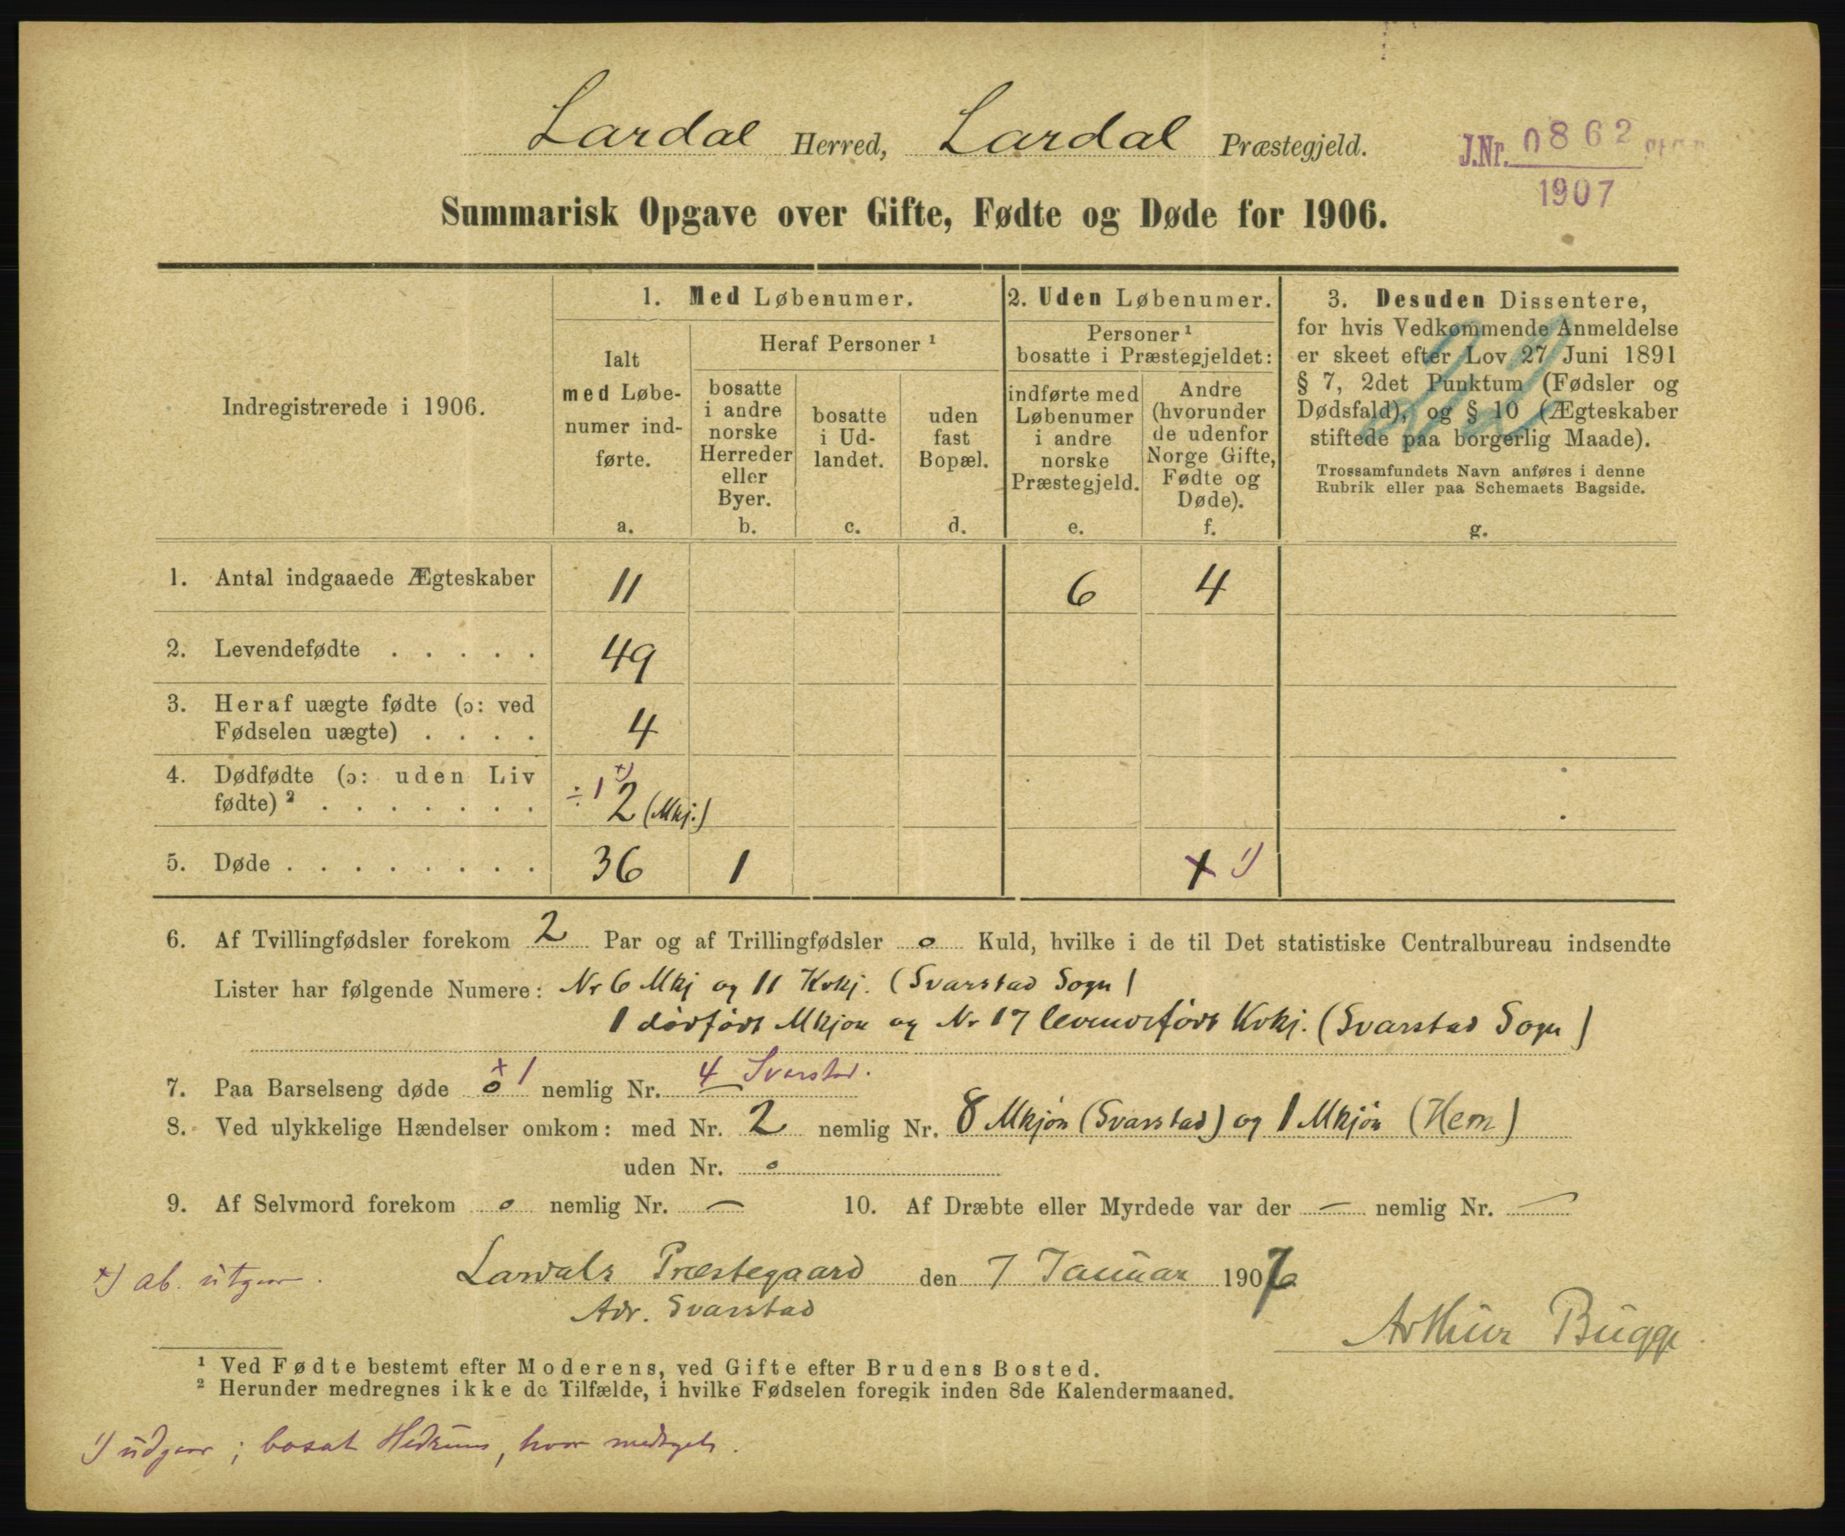 Lardal Herred, Lardal Præstegjeld.
J.Nr. 0862
1907
Summarisk Opgave over Gifte, Fødte og Døde for 1906.
Indregistrerede i 1906.
1. Med Løbenumer.
Ialt
med Løbe-
numer ind-
førte.
a.
Heraf Personer ¹
bosatte
i andre
norske
Herreder
eller
Byer.
b.
bosatte
i Ud-
landet.
c.
uden
fast
Bopæl.
d.
2. Uden Løbenumer.
Personer ¹
bosatte i Præstegjeldet:
indførte med
Løbenumer
i andre
norske
Præstegjeld.
e.
Andre
(hvorunder
de udenfor
Norge Gifte,
Fødte og
Døde).
f.
3. Desuden Dissentere,
for hvis Vedkommende Anmeldelse
er skeet efter Lov 27 Juni 1891
§ 7, 2det Punktum (Fødsler og
Dødsfald), og § 10 (Ægteskaber
stiftede paa borgerlig Maade).
Trossamfundets Navn anføres i denne
Rubrik eller paa Schemaets Bagside.
g.
22
1. Antal indgaaede Ægteskaber 11 6 4
2. Levendefødte . . . . . 49
3. Heraf uægte fødte (ɔ: ved
Fødselen uægte) . . . . 4
4. Dødfødte (ɔ: uden Liv
fødte) ² . . . . . . . ÷1 ×) 2 (Mkj.)
5. Døde . . . . . . . . 36 1 1 ¹)
6. Af Tvillingfødsler forekom 2 Par og af Trillingfødsler o Kuld, hvilke i de til Det statistiske Centralbureau indsendte
Lister har følgende Numere: Nr 6 Mkj og 11 Kvkj. (Svarstad Sogn)
1 dødfødt Mkjøn og Nr 17 levendefødt Kvkj. (Svarstad Sogn)
7. Paa Barselseng døde o × 1 nemlig Nr. 4 Svarstad.
8. Ved ulykkelige Hændelser omkom: med Nr. 2 nemlig Nr. 8 Mkjøn (Svarstad) og 1 Mkjön (Hem)
uden Nr. o
9. Af Selvmord forekom o nemlig Nr. — 10. Af Dræbte eller Myrdede var der — nemlig Nr. —
×) ab. utgaar.
Lardals Præstegaard den 7 Januar 1907
Adr. Svarstad
Arthur Bugge.
¹ Ved Fødte bestemt efter Moderens, ved Gifte efter Brudens Bosted.
² Herunder medregnes ikke de Tilfælde, i hvilke Fødselen foregik inden 8de Kalendermaaned.
¹) udgaar; bosat Hedrum, hvor medtages.